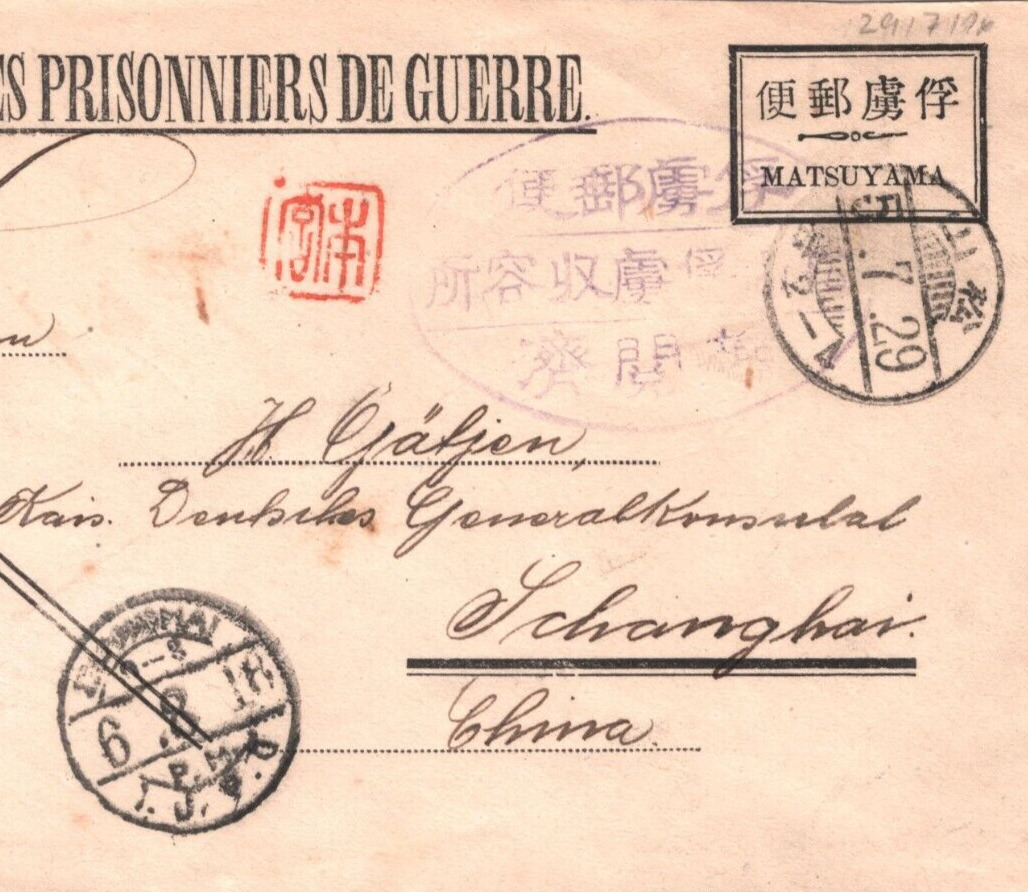 29/7/19
ES PRISONNIERS DE GUERRE.
便郵虜俘
MATSUYAMA
便郵虜俘
所容收虜俘
濟閲
松山
5.7.29
H. Gätjen,
Kais. Deutsches Generalkonsulat
Schanghai.
China.
6
I.J.P.